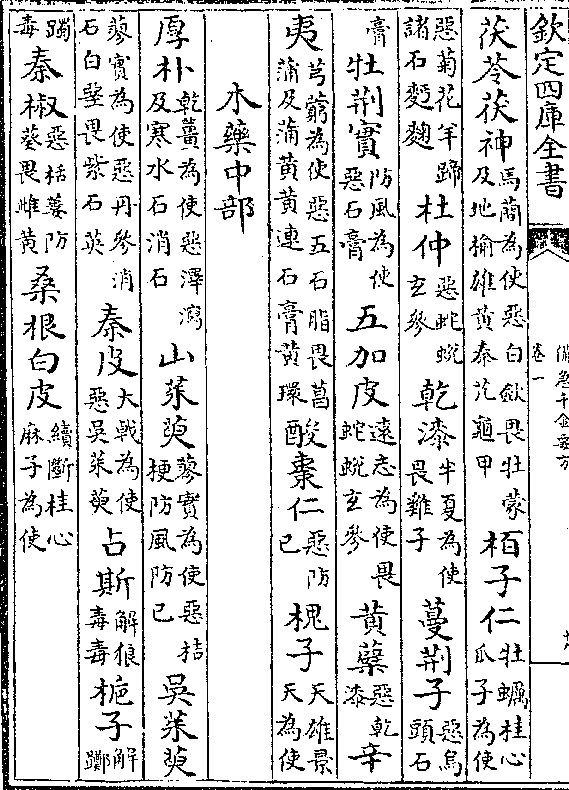 欽定四庫全書
茯苓茯神馬䕡為使惡白歛畏牡蒙及地榆雄黃秦艽龜甲栢子仁牡蠣桂心瓜子為使
惡菊花羊蹄諸石麪麴杜仲惡蛇蛻玄參乾漆半夏為使畏雞子蔓荆子惡烏頭石
膏牡荆實防風為使惡石膏五加皮遠志為使畏蛇蛻玄參黃蘗惡乾漆辛
夷芎藭為使惡五石脂畏菖蒲及蒲黃黃連石膏黃環酸棗仁惡防已槐子天雄景天為使
木藥中部
厚朴乾薑為使惡澤瀉及寒水石消石山茱萸蓼實為使惡桔梗防風防已吳茱萸
蓼實為使惡丹參消石白堊畏紫石英秦皮大戟為使惡吳茱萸占斯解狼毒毒梔子解躑
躅毒秦椒惡栝蔞防葵畏雌黃桑根白皮續斷桂心麻子為使
備急千金要方
卷一